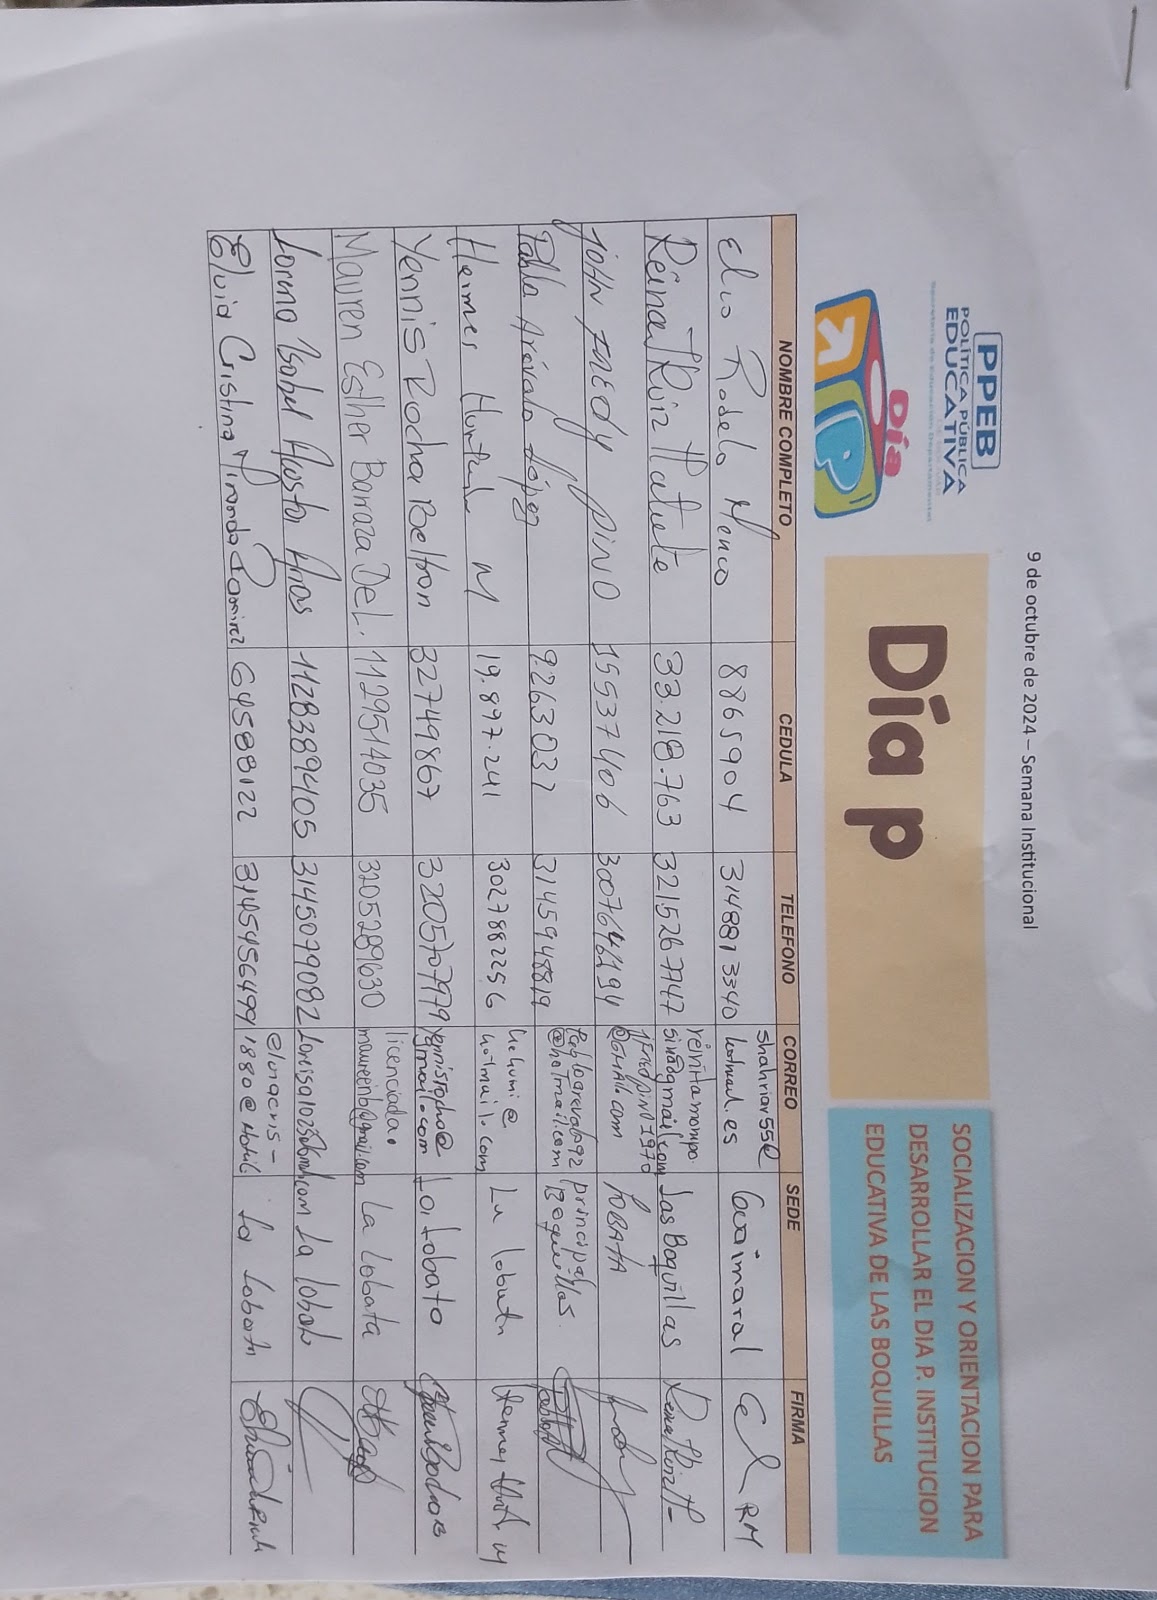 9 de octubre de 2024 – Semana Institucional
PPEB
POLÍTICA PÚBLICA
EDUCATIVA
Secretaría de Educación Departamental
Día
P
Día p
SOCIALIZACION Y ORIENTACION PARA
DESARROLLAR EL DIA P. INSTITUCION
EDUCATIVA DE LAS BOQUILLAS
NOMBRE COMPLETO CEDULA TELEFONO CORREO SEDE FIRMA
Elvis Rodelo Menco 8865904 3148813340 shahriar55@ hotmail.es Guaimaral RM
Reina Ruiz 33.218.763 3215267747 reinitamompo. Las Boquillas
JOHN FREDY PINO 15537406 3007646194 @GMAIL.com LOBATA
Pabla Arévalo López 9263037 3145948819 pabloarevalo92 @hotmail.com principal las Boquillas.
Hermes M 19.897.241 3027882256 hehumi@ hotmail.com La lobata
Yennis Rocha Beltran 32749867 3205707979 yennisrocha@ gmail.com La Lobato
Mauren Esther Barraza DeL. 1129514035 3205289630 licenciada. maureenb@gmail.com La Lobata
Lorena Isabel Acosta Arias 1128389405 3145079082 La lobata
Elvia Cristina Miranda Ramirez 64588122 3145456499 elviacris- 1880@ La Lobata